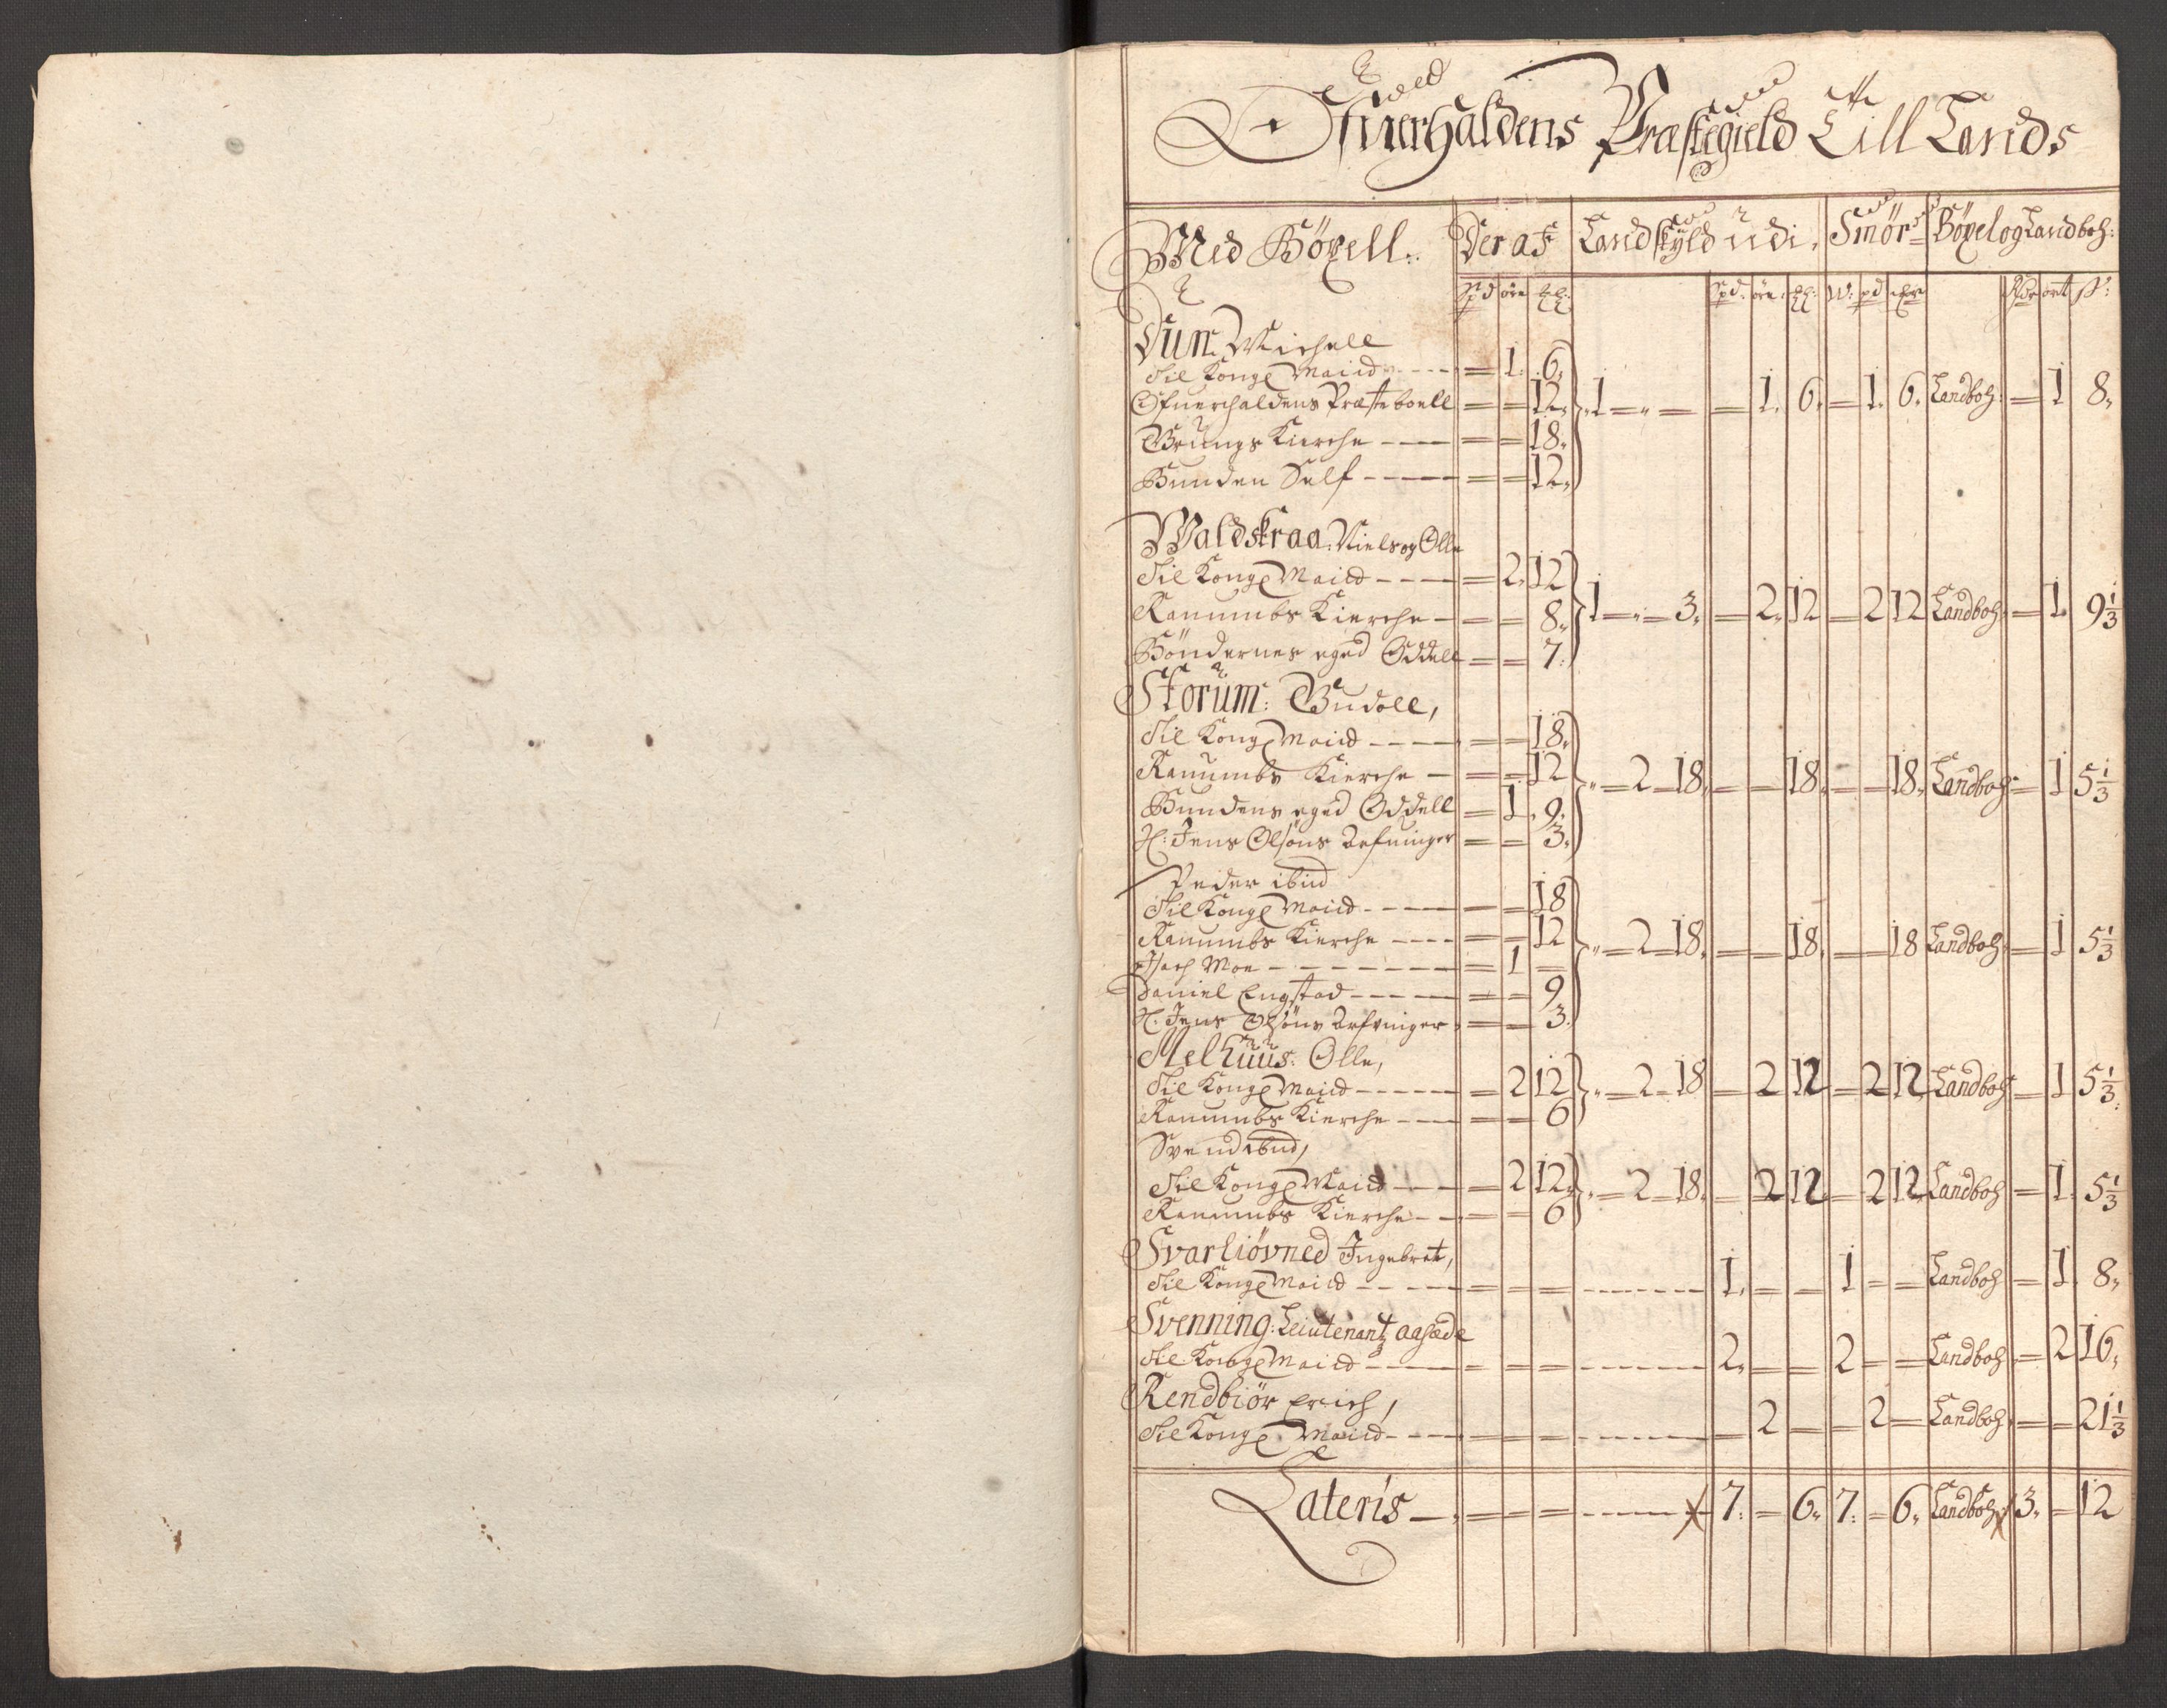 Ofuerhaldens Præstegield Till Lands
Med Böxell. Der af Landskyld udi. Smör Böxel og Landboh:
Spd öre Spd: öre: W: pd Rdr ort s:
Dun: Michell
Til Kong Maiid ---- = 1. 6.
Ofuerhaldens Præsteboell = = 12. 1 = = = 1. 6. = 1. 6. Landboh: = 1 8.
Grungs Kierche ---- = = 18.
Bunden Self ----- = = 12.
Waldskraa: Niels og Olle
Til Kong Maiid ---- = 2. 12
Ranumbs Kierche - = = 8. 1 = = 3. = 2. 12 = 2 12 Landboh: = 1. 9 1/3
Böndernes eged Oddell = = 7.
Storum: Gudoll,
Til Kong Maiid ---- = = 18.
Ranumbs Kierche - = = 12 = 2 = 18. = = 18. = = 18. Landboh = 1 5 1/3
Bundens eged Oddell = 1. 9.
H: Jens Olsöns Arfuinger = = 3.
Peder ibid
Til Kong Maiid ---- = = 18
Ranumbs Kierche ---- = = 12 = 2 = 18. = = 18. = = 18 Landboh = 1 5 1/3
Isach Moe ------- = 1 =
Daniel Engstad ---- = = 9
H. Jens Olsöns Arfvinger = = 3.
Melhuus: Olle,
Til Kong Maiid ----- = 2 12 = 2 = 18 = 2 12 = 2 12 Landboh = 1 5 1/3
Ranumbs Kierche --- = = 6
Svend ibid,
Til Kong Maiid --- = 2 12. = 2 = 18. = 2 12 = 2 12. Landboh = 1. 5 1/3
Ranumbs Kierche -- = = 6
Svarliövned Ingebret,
Til Kong Maiid ---- = = = ------ 1. = = 1 = = Landboh = 1. 8.
Svenning: Leiutenantz aasæde
Til Kong Maiid ---- = = = ------ 2. = = 2 = = Landboh = 2 16.
Rendbiör Erich,
Til Kong Maiid ---- = = = ------ = 2 = = 2 = Landboh = = 21 1/3
Lateris = = = ------ 7. = 6. 7. = 6. Landboh: 3. = 12